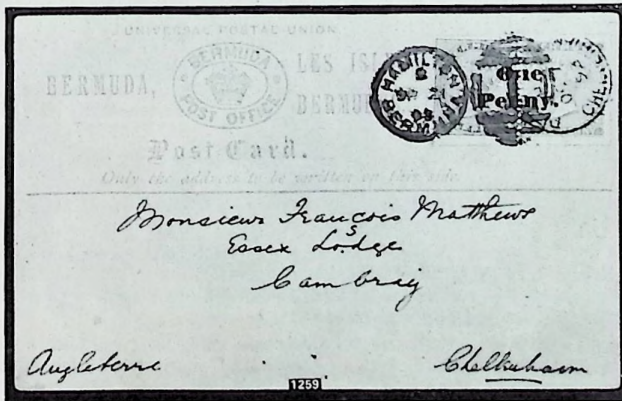 UNIVERSAL POSTAL UNION
BERMUDA,
BERMUDA POST OFFICE
LES
BERMU
HAMILTON BERMUDA
One
Penny.
Post Card.
Only the address to be written on this side.
Monsieur François Matthews
Essex Lodge
Cambray
Angleterre
Cheltenham
1259